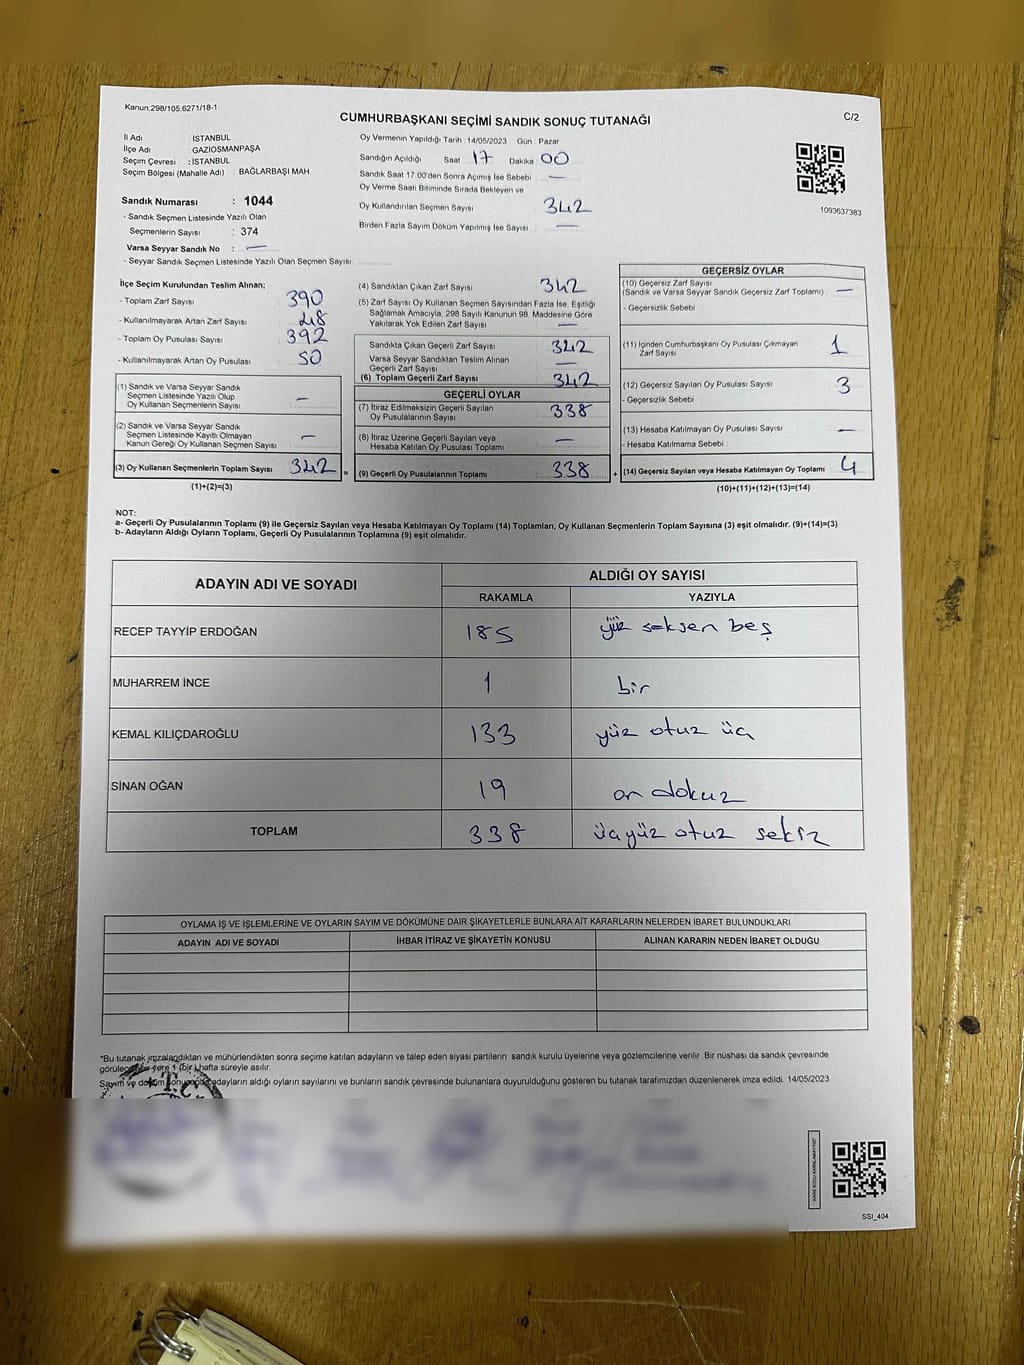 Kanun.298/105,6271/18-1
CUMHURBAŞKANI SEÇİMİ SANDIK SONUÇ TUTANAĞI
C/2
İl Adı : İSTANBUL
İlçe Adı : GAZİOSMANPAŞA
Seçim Çevresi : İSTANBUL
Seçim Bölgesi (Mahalle Adı) : BAĞLARBAŞI MAH.
Sandık Numarası : 1044
- Sandık Seçmen Listesinde Yazılı Olan
Seçmenlerin Sayısı : 374
Varsa Seyyar Sandık No : —
- Seyyar Sandık Seçmen Listesinde Yazılı Olan Seçmen Sayısı:
Oy Vermenin Yapıldığı Tarih : 14/05/2023 Gün : Pazar
Sandığın Açıldığı Saat 17 Dakika 00
Sandık Saat 17:00'den Sonra Açılmış İse Sebebi : —
Oy Verme Saati Bitiminde Sırada Bekleyen ve
Oy Kullandırılan Seçmen Sayısı : 342
Birden Fazla Sayım Döküm Yapılmış İse Sayısı : —
1093637383
İlçe Seçim Kurulundan Teslim Alınan;
- Toplam Zarf Sayısı : 390
- Kullanılmayarak Artan Zarf Sayısı : 48
- Toplam Oy Pusulası Sayısı : 392
- Kullanılmayarak Artan Oy Pusulası : 50
(1) Sandık ve Varsa Seyyar Sandık
Seçmen Listesinde Yazılı Olup
Oy Kullanan Seçmenlerin Sayısı : —
(2) Sandık ve Varsa Seyyar Sandık
Seçmen Listesinde Kayıtlı Olmayan
Kanun Gereği Oy Kullanan Seçmen Sayısı : —
(3) Oy Kullanan Seçmenlerin Toplam Sayısı 342 =
(1)+(2)=(3)
(4) Sandıktan Çıkan Zarf Sayısı : 342
(5) Zarf Sayısı Oy Kullanan Seçmen Sayısından Fazla İse, Eşitliği
Sağlamak Amacıyla, 298 Sayılı Kanunun 98. Maddesine Göre
Yakılarak Yok Edilen Zarf Sayısı : —
Sandıkta Çıkan Geçerli Zarf Sayısı : 342
Varsa Seyyar Sandıktan Teslim Alınan
Geçerli Zarf Sayısı : —
(6) Toplam Geçerli Zarf Sayısı : 342
GEÇERLİ OYLAR
(7) İtiraz Edilmeksizin Geçerli Sayılan
Oy Pusulalarının Sayısı : 338
(8) İtiraz Üzerine Geçerli Sayılan veya
Hesaba Katılan Oy Pusulası Toplamı : —
(9) Geçerli Oy Pusulalarının Toplamı : 338 +
GEÇERSİZ OYLAR
(10) Geçersiz Zarf Sayısı
(Sandık ve Varsa Seyyar Sandık Geçersiz Zarf Toplamı) : —
- Geçersizlik Sebebi :
(11) İçinden Cumhurbaşkanı Oy Pusulası Çıkmayan
Zarf Sayısı : 1
(12) Geçersiz Sayılan Oy Pusulası Sayısı : 3
- Geçersizlik Sebebi :
(13) Hesaba Katılmayan Oy Pusulası Sayısı : —
- Hesaba Katılmama Sebebi :
(14) Geçersiz Sayılan veya Hesaba Katılmayan Oy Toplamı : 4
(10)+(11)+(12)+(13)=(14)
NOT:
a- Geçerli Oy Pusulalarının Toplamı (9) ile Geçersiz Sayılan veya Hesaba Katılmayan Oy Toplamı (14) Toplamları, Oy Kullanan Seçmenlerin Toplam Sayısına (3) eşit olmalıdır. (9)+(14)=(3)
b- Adayların Aldığı Oyların Toplamı, Geçerli Oy Pusulalarının Toplamına (9) eşit olmalıdır.
ADAYIN ADI VE SOYADI
ALDIĞI OY SAYISI
RAKAMLA YAZIYLA
RECEP TAYYİP ERDOĞAN 185 yüz seksen beş
MUHARREM İNCE 1 bir
KEMAL KILIÇDAROĞLU 133 yüz otuz üç
SİNAN OĞAN 19 on dokuz
TOPLAM 338 üçyüz otuz sekiz
OYLAMA İŞ VE İŞLEMLERİNE VE OYLARIN SAYIM VE DÖKÜMÜNE DAİR ŞİKAYETLERLE BUNLARA AİT KARARLARIN NELERDEN İBARET BULUNDUKLARI
ADAYIN ADI VE SOYADI İHBAR İTİRAZ VE ŞİKAYETİN KONUSU ALINAN KARARIN NEDEN İBARET OLDUĞU
*Bu tutanak imzalandıktan ve mühürlendikten sonra seçime katılan adayların ve talep eden siyasi partilerin sandık kurulu üyelerine veya gözlemcilerine verilir. Bir nüshası da sandık çevresinde
yere 1 (bir) hafta süreyle asılır.
Sayım ve döküm adayların aldığı oyların sayılarını ve bunların sandık çevresinde bulunanlara duyurulduğunu gösteren bu tutanak tarafımızdan düzenlenerek imza edildi. 14/05/2023
T.C.
SSİ_404